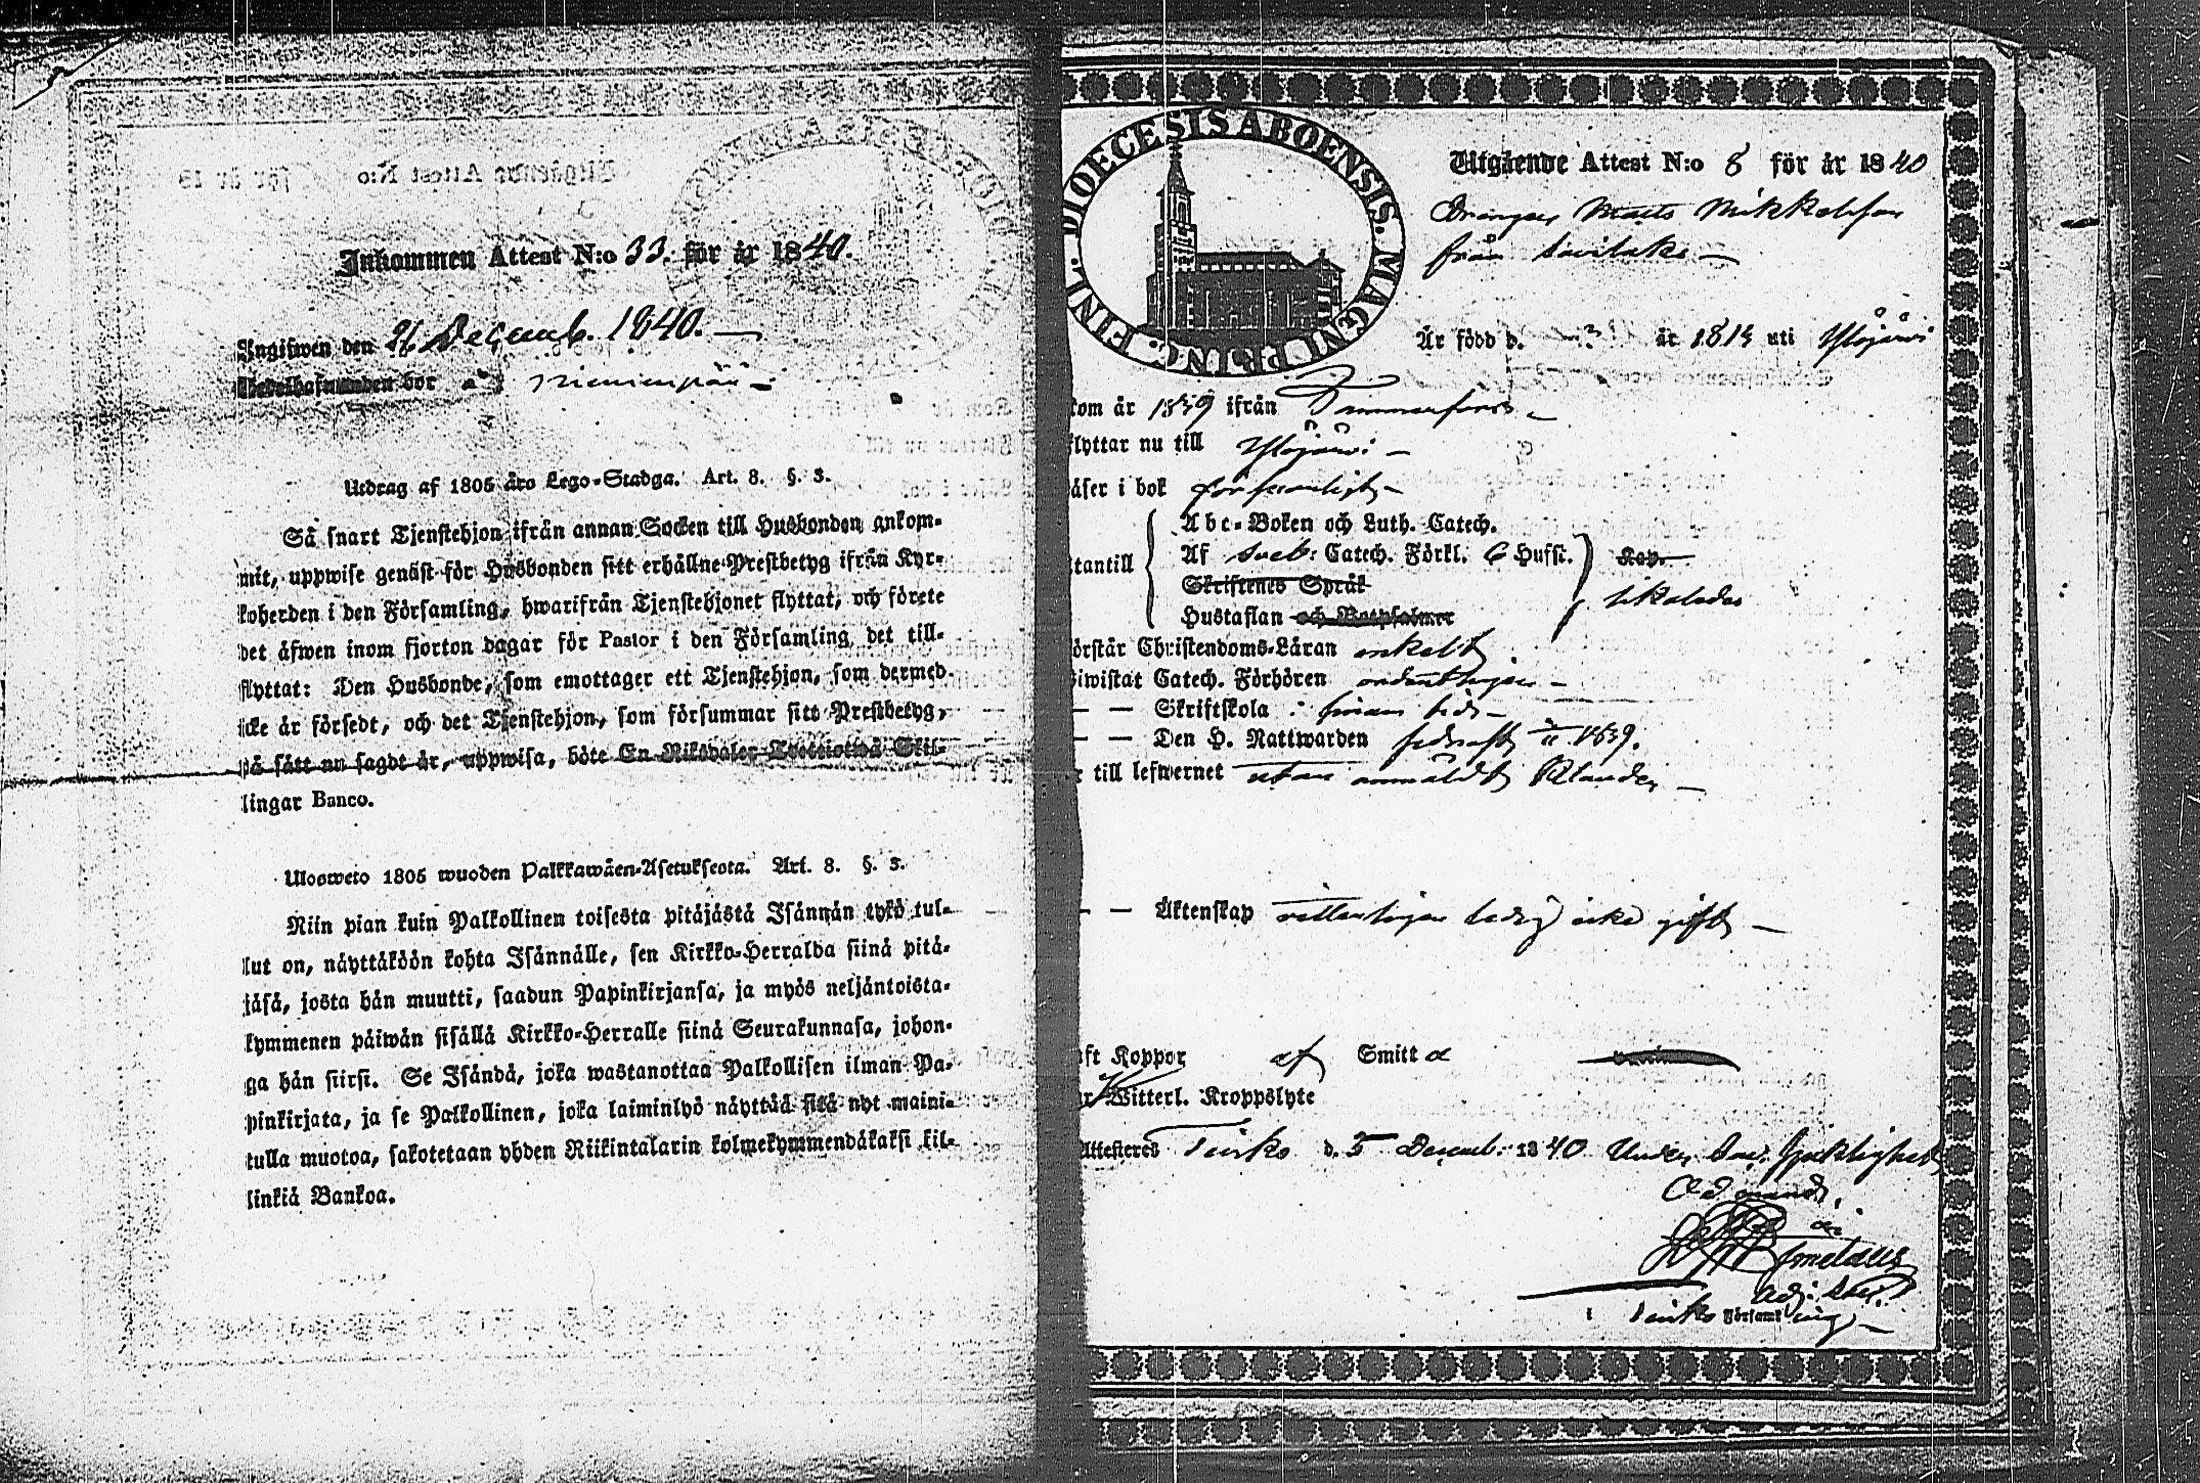 Inkommen Attest N:o 33. för år 1840.
Ingifwen den 26 Decemb. 1840.
bor
Utdrag af 1805 års Lego-Stadga. Art. 8. §. 3.
Så snart Tjenstehjon ifrån annan Socken till Husbonden ankom-
mit, uppwise genast för Husbonden sitt erhållne Prestbetyg ifrån Kyr-
koherden i den Församling, hwarifrån Tjenstehjonet flyttat, och förete
det äfwen inom fjorton dagar för Pastor i den Församling, det till-
flyttat: Den Husbonde, som emottager ett Tjenstehjon, som dermed
icke är försedt, och det Tjenstehjon, som försummar sitt Prestbetyg,
på sätt nu sagdt är, uppwisa, böte En Riksdaler Trettiotwå Skil-
lingar Banco.
Ulosweto 1805 wuoden Palkkawäen-Asetuksesta. Art. 8. §. 3.
Niin pian kuin Palkollinen toisesta pitäjästä Isännän tykö tul-
lut on, näyttäköön kohta Isännälle, sen Kirkko-Herralda siinä pitä-
jäsä, josta hän muutti, saadun Papinkirjansa, ja myös neljäntoista-
kymmenen päiwän sisällä Kirkko-Herralle siinä Seurakunnasa, johon-
ga hän siirsi. Se Isändä, joka wastanottaa Palkollisen ilman Pa-
pinkirjata, ja se Palkollinen, joka laiminlyö näyttää sitä nyt maini-
tulla muotoa, sakotetaan yhden Riikintalarin kolmekymmendäkaksi kil-
linkiä Bankoa.
DIOECESIS ABOENSIS. MAGNI PRINC. FINL.
Utgående Attest N:o 8 för år 1840
Drängen Matts Mikkelsson
från
Är född d. 3 år 181 uti Ylöjärvi
kom år 1839 ifrån Tammerfors
flyttar nu till Ylöjärvi
läser i bok försvarligt
utantill Abc-Boken och Luth. Catech.
Af Sveb: Catech. Förkl. 6 Hufst.
Skriftenes Språk
Hustaflan och Botpsalmer likaledes
förstår Christendoms-Läran enkelt
biwistat Catech. Förhören ordentligen
— — Skriftskola i sinom tid
— — Den H. Nattwarden sednast 1839.
är till lefwernet utan anmäldt klander
— — Äktenskap vetterligen ledig icke gift
haft Koppor af Smitta
har Witterl. Kroppslyte
Attesteres d. 5 Decemb. 1840 Under
i Församling